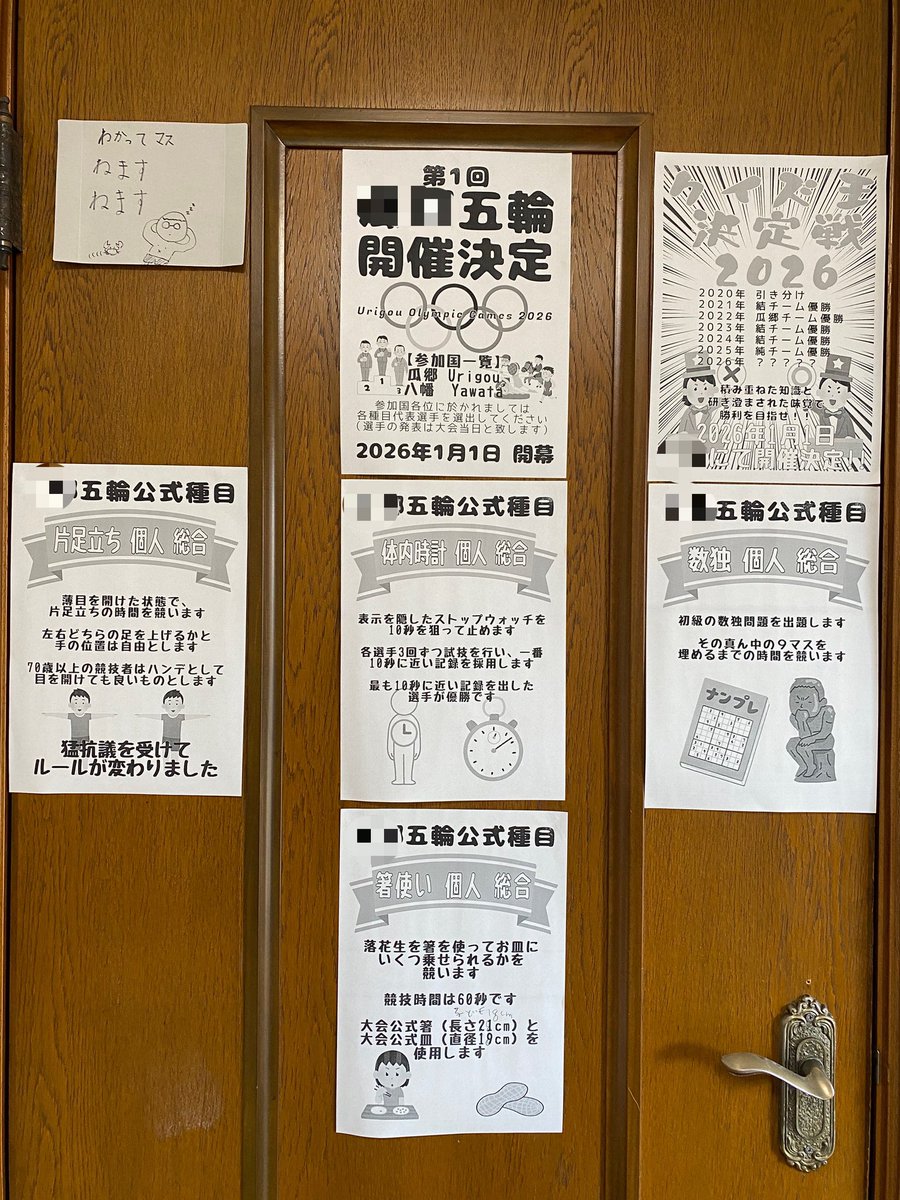 わかってマス
ねます
ねます
第1回
五輪
開催決定
Urigou Olympic Games 2026
2 1 3
【参加国一覧】
瓜郷 Urigou
八幡 Yawata
参加国各位に於かれましては
各種目代表選手を選出してください
(選手の発表は大会当日と致します)
2026年1月1日 開幕
クイズ王
決定戦
2026
2020年 引き分け
2021年 結チーム優勝
2022年 瓜郷チーム優勝
2023年 結チーム優勝
2024年 結チーム優勝
2025年 純チーム優勝
2026年 ?????
積み重ねた知識と
研ぎ澄まされた味覚で
勝利を目指せ!!
2026年1月1日
にて開催決定!!
五輪公式種目
片足立ち 個人 総合
薄目を開けた状態で、
片足立ちの時間を競います
左右どちらの足を上げるかと
手の位置は自由とします
70歳以上の競技者はハンデとして
目を開けても良いものとします
猛抗議を受けて
ルールが変わりました
五輪公式種目
体内時計 個人 総合
表示を隠したストップウォッチを
10秒を狙って止めます
各選手3回ずつ試技を行い、一番
10秒に近い記録を採用します
最も10秒に近い記録を出した
選手が優勝です
五輪公式種目
数独 個人 総合
初級の数独問題を出題します
その真ん中の9マスを
埋めるまでの時間を競います
ナンプレ
五輪公式種目
箸使い 個人 総合
落花生を箸を使ってお皿に
いくつ乗せられるかを
競います
競技時間は60秒です
子ども18cm
大会公式箸(長さ21cm)と
大会公式皿(直径19cm)を
使用します